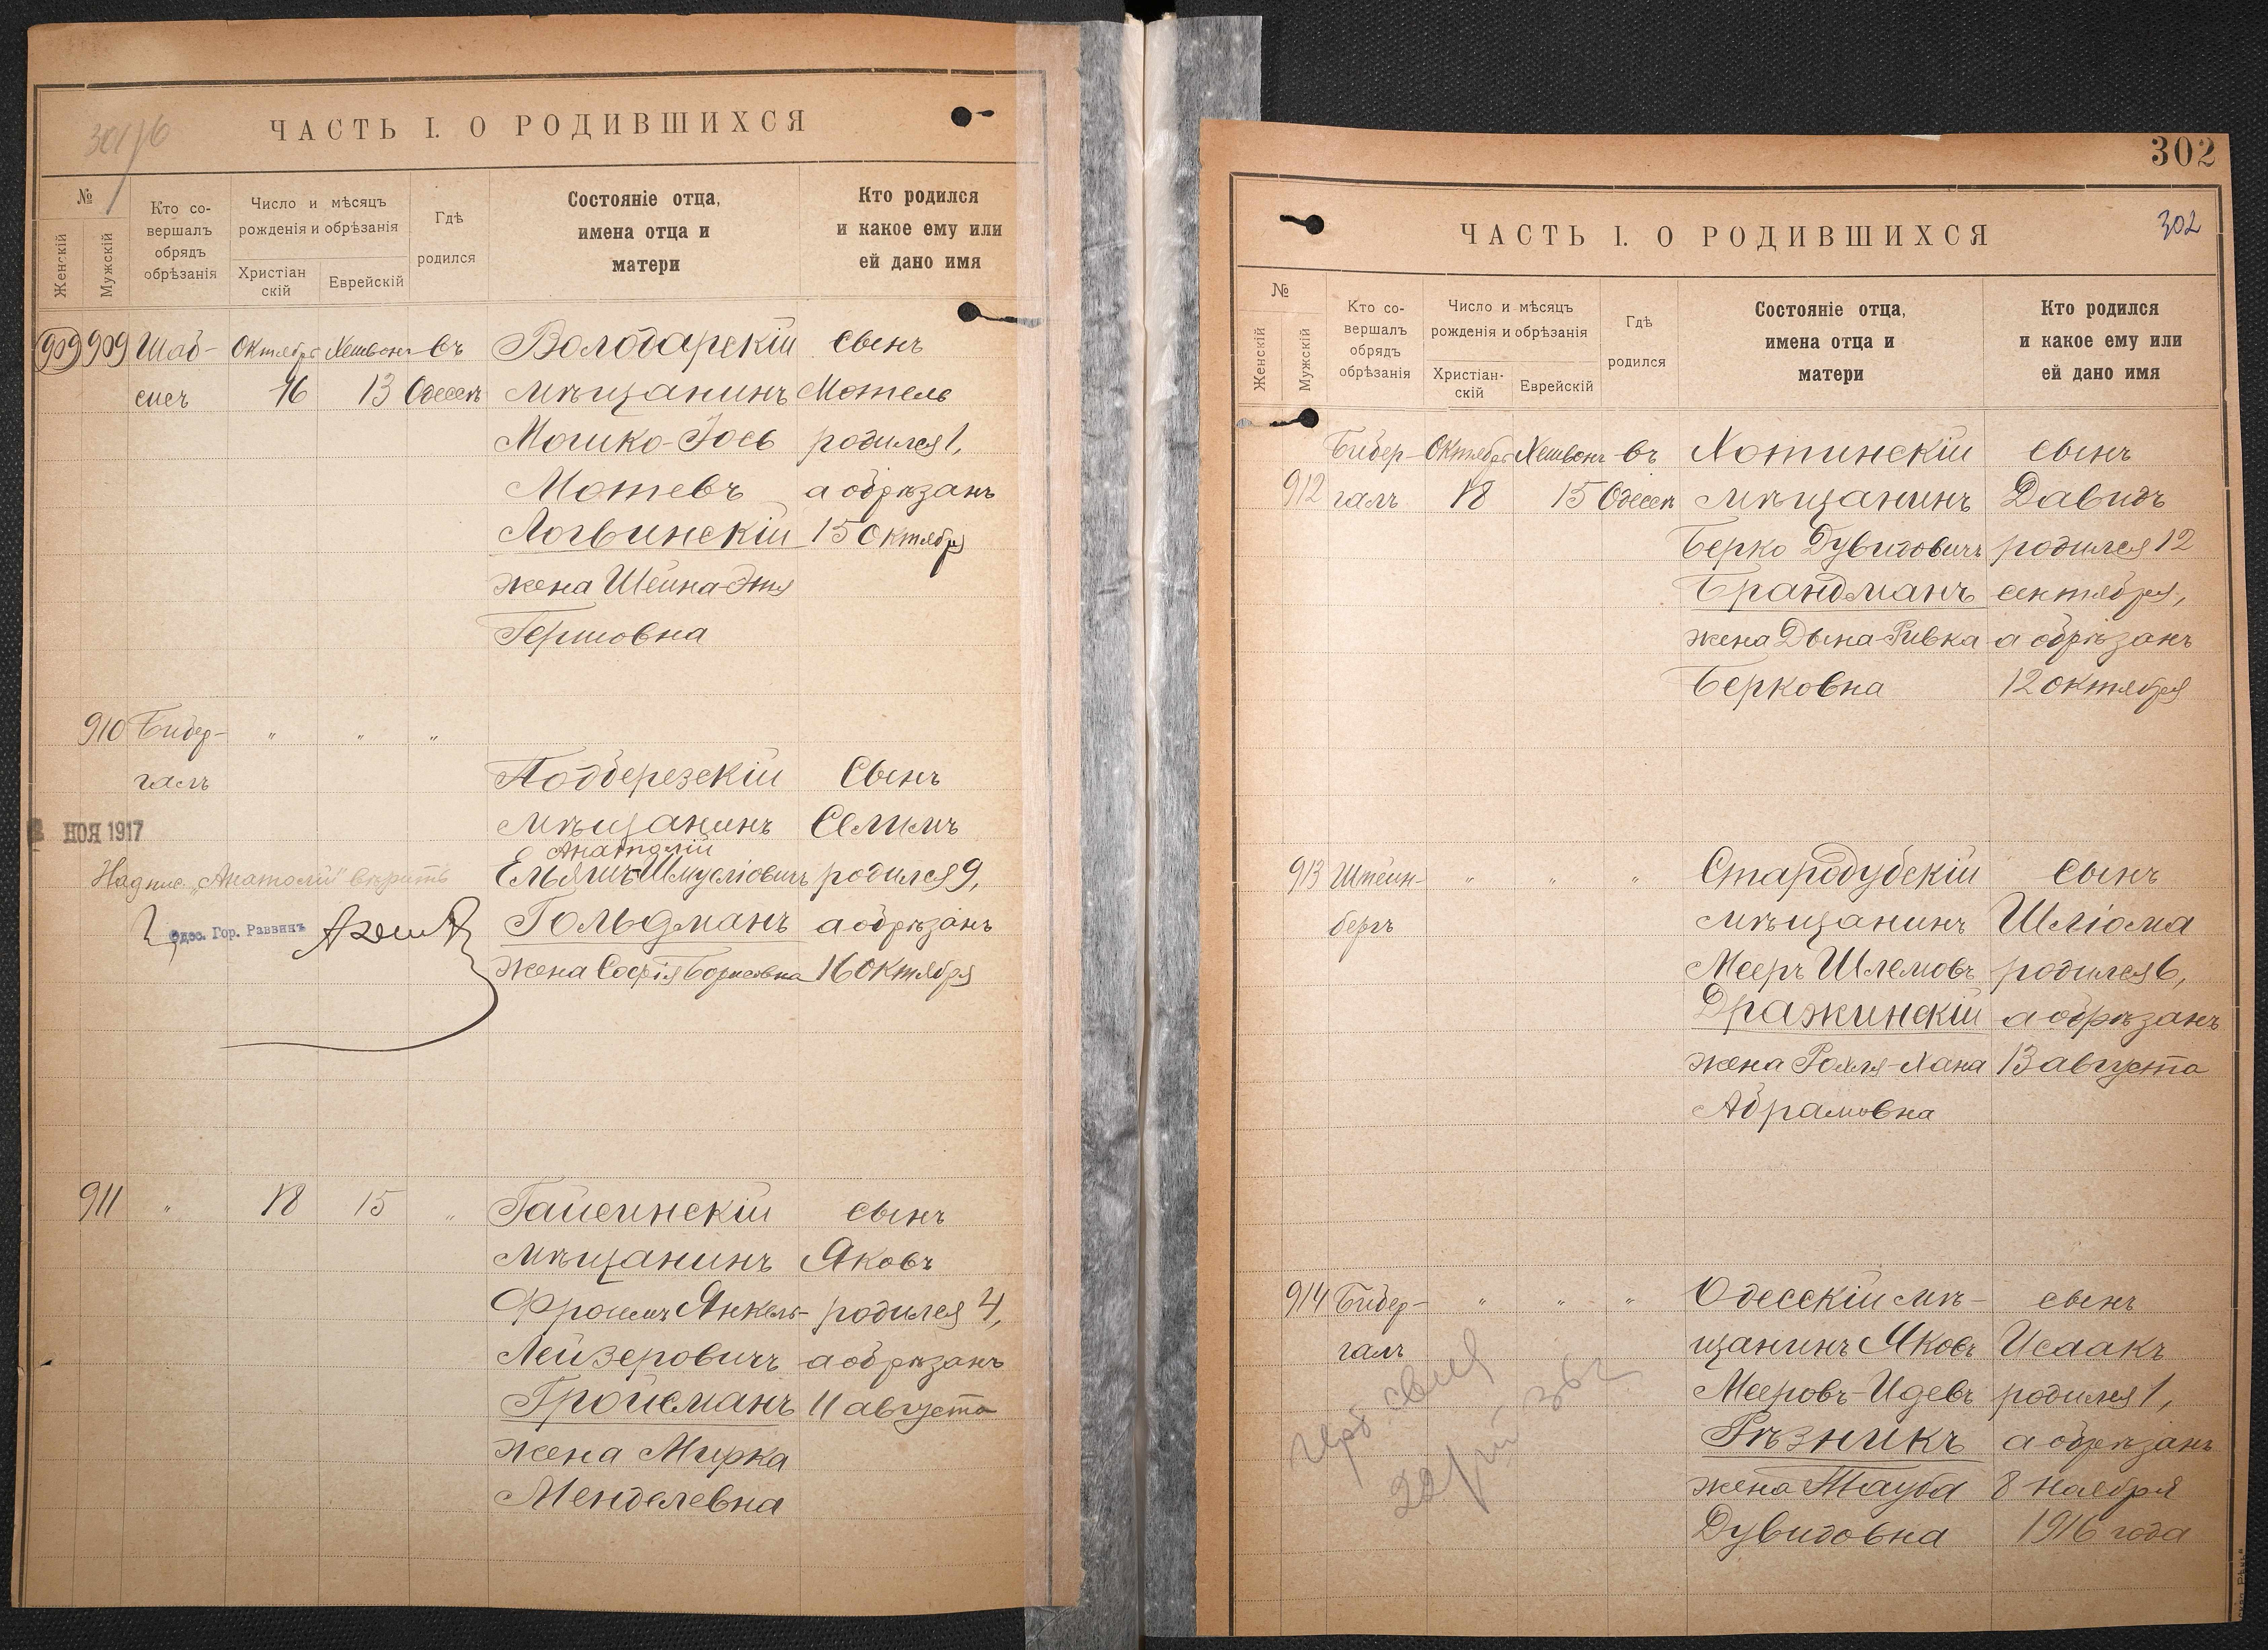 301/6
ЧАСТЬ I. О РОДИВШИХСЯ
№
Женскій
Мужскій
Кто со-
вершалъ
обрядъ
обрѣзанія
Число и мѣсяцъ
рожденія и обрѣзанія
Христіан
скій
Еврейскій
Гдѣ
родился
Состояніе отца,
имена отца и
матери
Кто родился
и какое ему или
ей дано имя
909 909 Шаб- Октября Хешвонъ въ Володарскій сынъ
сисъ 16 13 Одессѣ мѣщанинъ Мотель
Мошко-Іось родился 1,
Мотевъ а обрѣзанъ
Логвинскій 15 Октября
жена Шейна-Этя
Гершовна
910 Бибер- " " "
галъ Подберезскій Сынъ
НОЯ 1917 мѣщанинъ Селимъ
Анатолій
Надпис. „Анатолій" вѣрить Ельяшъ-Шмуліовичъ родился 9,
Одес. Гор. Раввинъ Гольдманъ а обрѣзанъ
жена Софія Борисовна 16 Октября
911 " 18 15 " Гайсинскій сынъ
мѣщанинъ Яковъ
Фроимъ Янкель- родился 4,
Лейзеровичъ а обрѣзанъ
Гройсманъ 11 августа
жена Мирка
Менделевна
302
302
ЧАСТЬ I. О РОДИВШИХСЯ
№
Женскій
Мужскій
Кто со-
вершалъ
обрядъ
обрѣзанія
Число и мѣсяцъ
рожденія и обрѣзанія
Христіан-
скій
Еврейскій
Гдѣ
родился
Состояніе отца,
имена отца и
матери
Кто родился
и какое ему или
ей дано имя
Бибер- Октября Хешвонъ въ Хотинскій сынъ
912 галъ 18 15 Одессѣ мѣщанинъ Давидъ
Берко Дувидовичъ родился 12
Брандманъ сентября,
жена Дына-Ривка а обрѣзанъ
Берковна 12 октября
913 Штейн- " " " Стародубскій сынъ
бергъ мѣщанинъ Шліома
Мееръ Шлемовъ родился 6,
Дражинскій а обрѣзанъ
жена Рохля-Хана 13 августа
Абрамовна
914 Бибер- " " " Одесскій мѣ- сынъ
галъ щанинъ Яковъ Исаакъ
Мееровъ-Идевъ родился 1,
Рѣзникъ а обрѣзанъ
жена Тауба 8 ноября
Дувидовна 1916 года